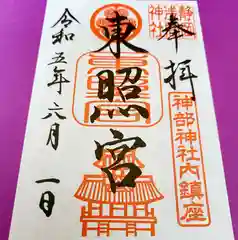 奉拝
東照宮
令和五年六月一日
静岡浅間神社
神部神社内鎮座